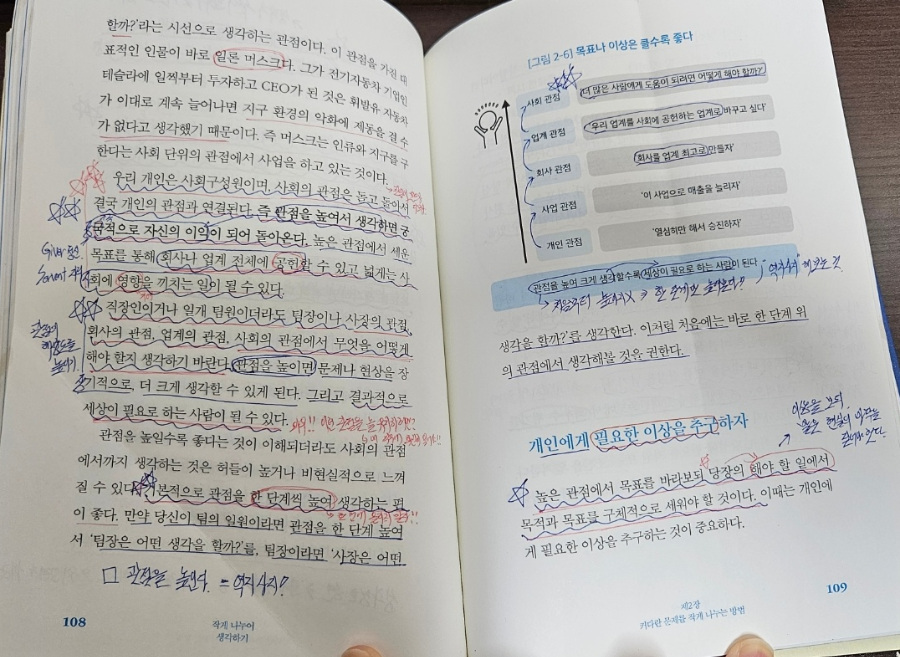 할까?'라는 시선으로 생각하는 관점이다. 이 관점을 가진 대
표적인 인물이 바로 일론 머스크다. 그가 전기자동차 기업인
테슬라에 일찍부터 투자하고 CEO가 된 것은 휘발유 자동차
가 이대로 계속 늘어나면 지구 환경의 악화에 제동을 걸 수
가 없다고 생각했기 때문이다. 즉 머스크는 인류와 지구를 구
한다는 사회 단위의 관점에서 사업을 하고 있는 것이다.
우리 개인은 사회구성원이며, 사회의 관점은 돌고 돌아서
결국 개인의 관점과 연결된다. 즉 관점을 높여서 생각하면 궁
극적으로 자신의 이익이 되어 돌아온다. 높은 관점에서 세운
목표를 통해 회사나 업계 전체에 공헌할 수 있고 넓게는 사
회에 영향을 끼치는 일이 될 수 있다.
직장인이거나 일개 팀원이더라도 팀장이나 사장의 관점,
회사의 관점, 업계의 관점, 사회의 관점에서 무엇을 어떻게
해야 할지 생각하기 바란다. 관점을 높이면 문제나 현상을 장
기적으로, 더 크게 생각할 수 있게 된다. 그리고 결과적으로
세상이 필요로 하는 사람이 될 수 있다.
관점을 높일수록 좋다는 것이 이해되더라도 사회의 관점
에서까지 생각하는 것은 허들이 높거나 비현실적으로 느껴
질 수 있다. 기본적으로 관점을 한 단계씩 높여 생각하는 편
이 좋다. 만약 당신이 팀의 일원이라면 관점을 한 단계 높여
서 '팀장은 어떤 생각을 할까?'를, 팀장이라면 '사장은 어떤
□ 관점을 높인다. = 역지사지?
108
작게 나누어
생각하기
[그림 2-6] 목표나 이상은 클수록 좋다
사회 관점
'더 많은 사람에게 도움이 되려면 어떻게 해야 할까?'
업계 관점
'우리 업계를 사회에 공헌하는 업계로 바꾸고 싶다'
회사 관점
'회사를 업계 최고로 만들자'
사업 관점
'이 사업으로 매출을 늘리자'
개인 관점
'열심히만 해서 승진하자'
관점을 높여 크게 생각할수록 세상이 필요로 하는 사람이 된다
생각을 할까?'를 생각한다. 이처럼 처음에는 바로 한 단계 위
의 관점에서 생각해볼 것을 권한다.
개인에게 필요한 이상을 추구하자
높은 관점에서 목표를 바라보되 당장의 해야 할 일에서
목적과 목표를 구체적으로 세워야 할 것이다. 이때는 개인에
게 필요한 이상을 추구하는 것이 중요하다.
109
제2장
커다란 문제를 작게 나누는 방법